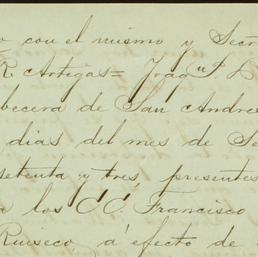 con el mismo y Secre
R. Artigas = Joaqⁿ P. L
becera de San Andres
dias del mes de Se
setenta y tres presentes
a los CC. Francisco
Ruiseco, á efecto de